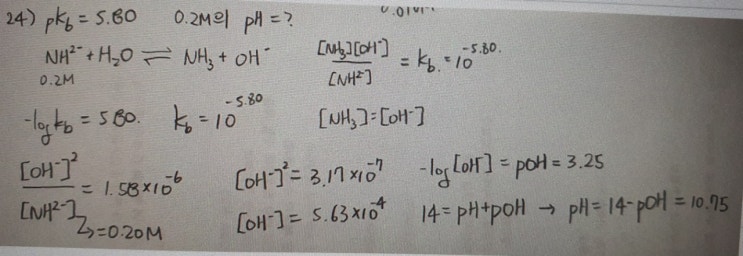 24) pkb = 5.80 0.2M의 pH = ?
NH²⁻ + H₂O ⇌ NH₃ + OH⁻ [NH₃][OH⁻] / [NH²⁻] = kb = 10^-5.80.
0.2M
-log kb = 5.80. kb = 10^-5.80 [NH₃] = [OH⁻]
[OH⁻]² / [NH²⁻] = 1.58×10⁻⁶ [OH⁻]² = 3.17×10⁻⁷ -log[OH⁻] = pOH = 3.25
↳ = 0.20M [OH⁻] = 5.63×10⁻⁴ 14 = pH + pOH → pH = 14 - pOH = 10.75